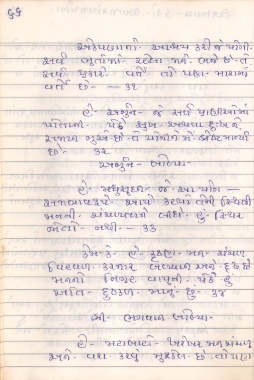 ૬૬
એકપણાનો આશ્રય કરી જે યોગી
સર્વ ભૂતોમાં રહેલા મને ભજે છે - તે
સર્વ પ્રકારે વર્તે તો પણ મારામાં
વર્તે છે. — ૩૧
હે - અર્જુન - જે સર્વ પ્રાણીઓમાં
પોતાની પેઠે સુખ અથવા દુઃખને
સમાન જુએ છે તે યોગીને મેં શ્રેષ્ઠ માન્યો
છે - ૩૨
અર્જુન - બોલ્યા -
હે - મધુસૂદન - જે આ યોગ —
સમભાવરૂપે આપે કહ્યો તેની સ્થિતી
મનની ચંચળતાને લીધે હું સ્થિર
જોતો નથી - ૩૩
કેમકે - હે કૃષ્ણ - મન ચંચળ
બળવાન અને દૃઢ છે
મનનો નિગ્રહ વાયુની પેઠે હું
અતિ દુષ્કર માનું છું ૩૪
શ્રી - ભગવાન બોલ્યા -
હે - મહાબાહો - ખરેખર મન ચંચળ
અને વશ કરવું મુશ્કેલ છે તો પણ